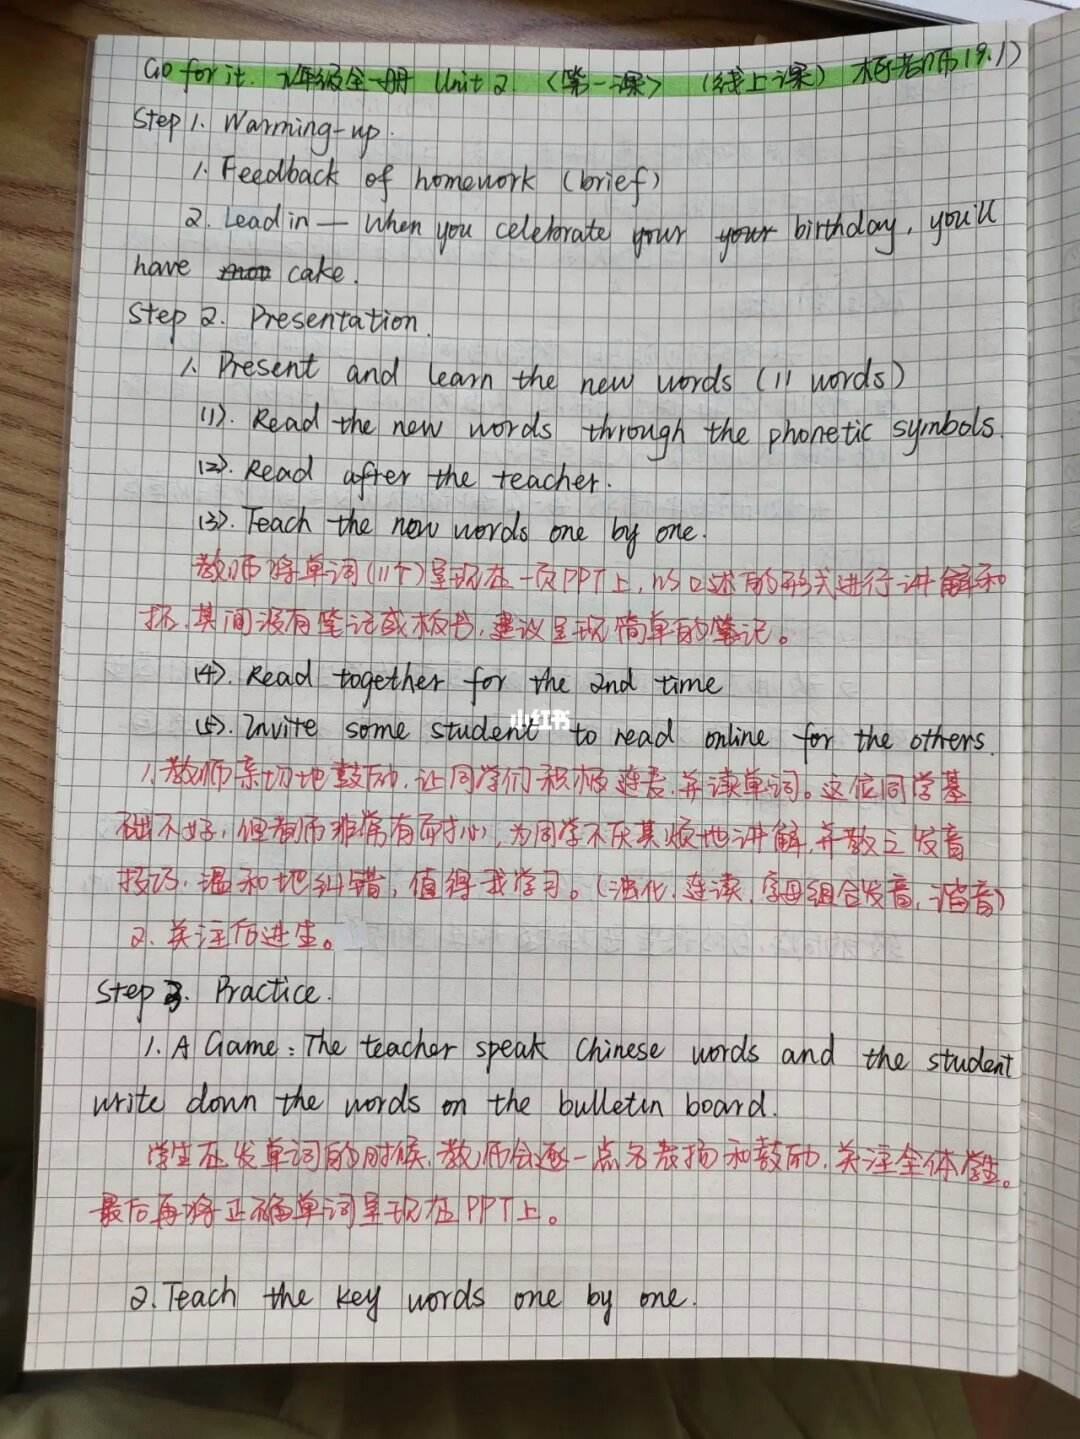 Go for it. 九年级全一册 Unit 2 〈第一课〉 (线上课) 老师 (9.1)
Step 1. Warming-up.
1. Feedback of homework (brief)
2. Lead in — When you celebrate your your birthday, you'll
have cake.
Step 2. Presentation.
1. Present and learn the new words (11 words)
(1). Read the new words through the phonetic symbols.
(2). Read after the teacher.
(3). Teach the new words one by one.
教师将单词(11个)呈现在一页PPT上,以口述的形式进行讲解和
拓,其间没有笔记或板书,建议呈现简单的笔记。
(4). Read together for the 2nd time
小红书
(5). Invite some student to read online for the others.
1.教师亲切地鼓励,让同学们积极连麦,并读单词。这位同学基
础不好,但老师非常有耐心,为同学不厌其烦地讲解,并教之发音
技巧,温和地纠错,值得我学习。(浊化,连读,字母组合发音,谐音)
2.关注后进生。
Step 3. Practice.
1. A Game: The teacher speak Chinese words and the student
write down the words on the bulletin board.
学生在发单词的时候,教师会逐一点名表扬和鼓励,关注全体学生。
最后再将正确单词呈现在PPT上。
2. Teach the key words one by one.